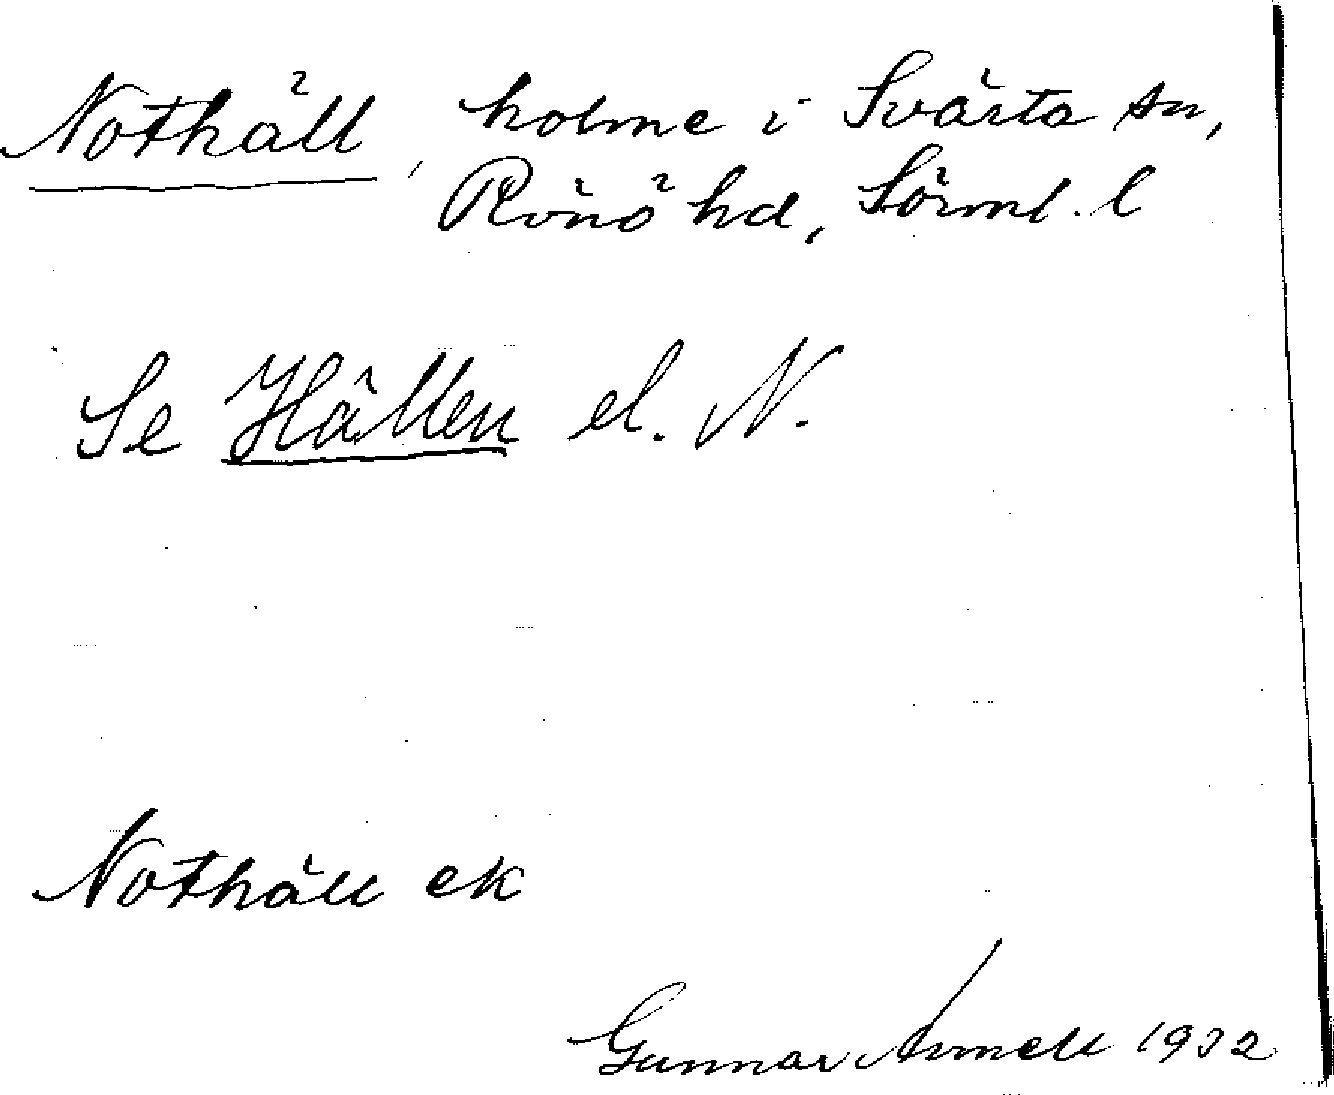 Nothäll, holme i Svärta sn,
Rönö hd, Sörml. l
Se Hällen el. N.
Nothäll ek
Gunnar Arnell 1932